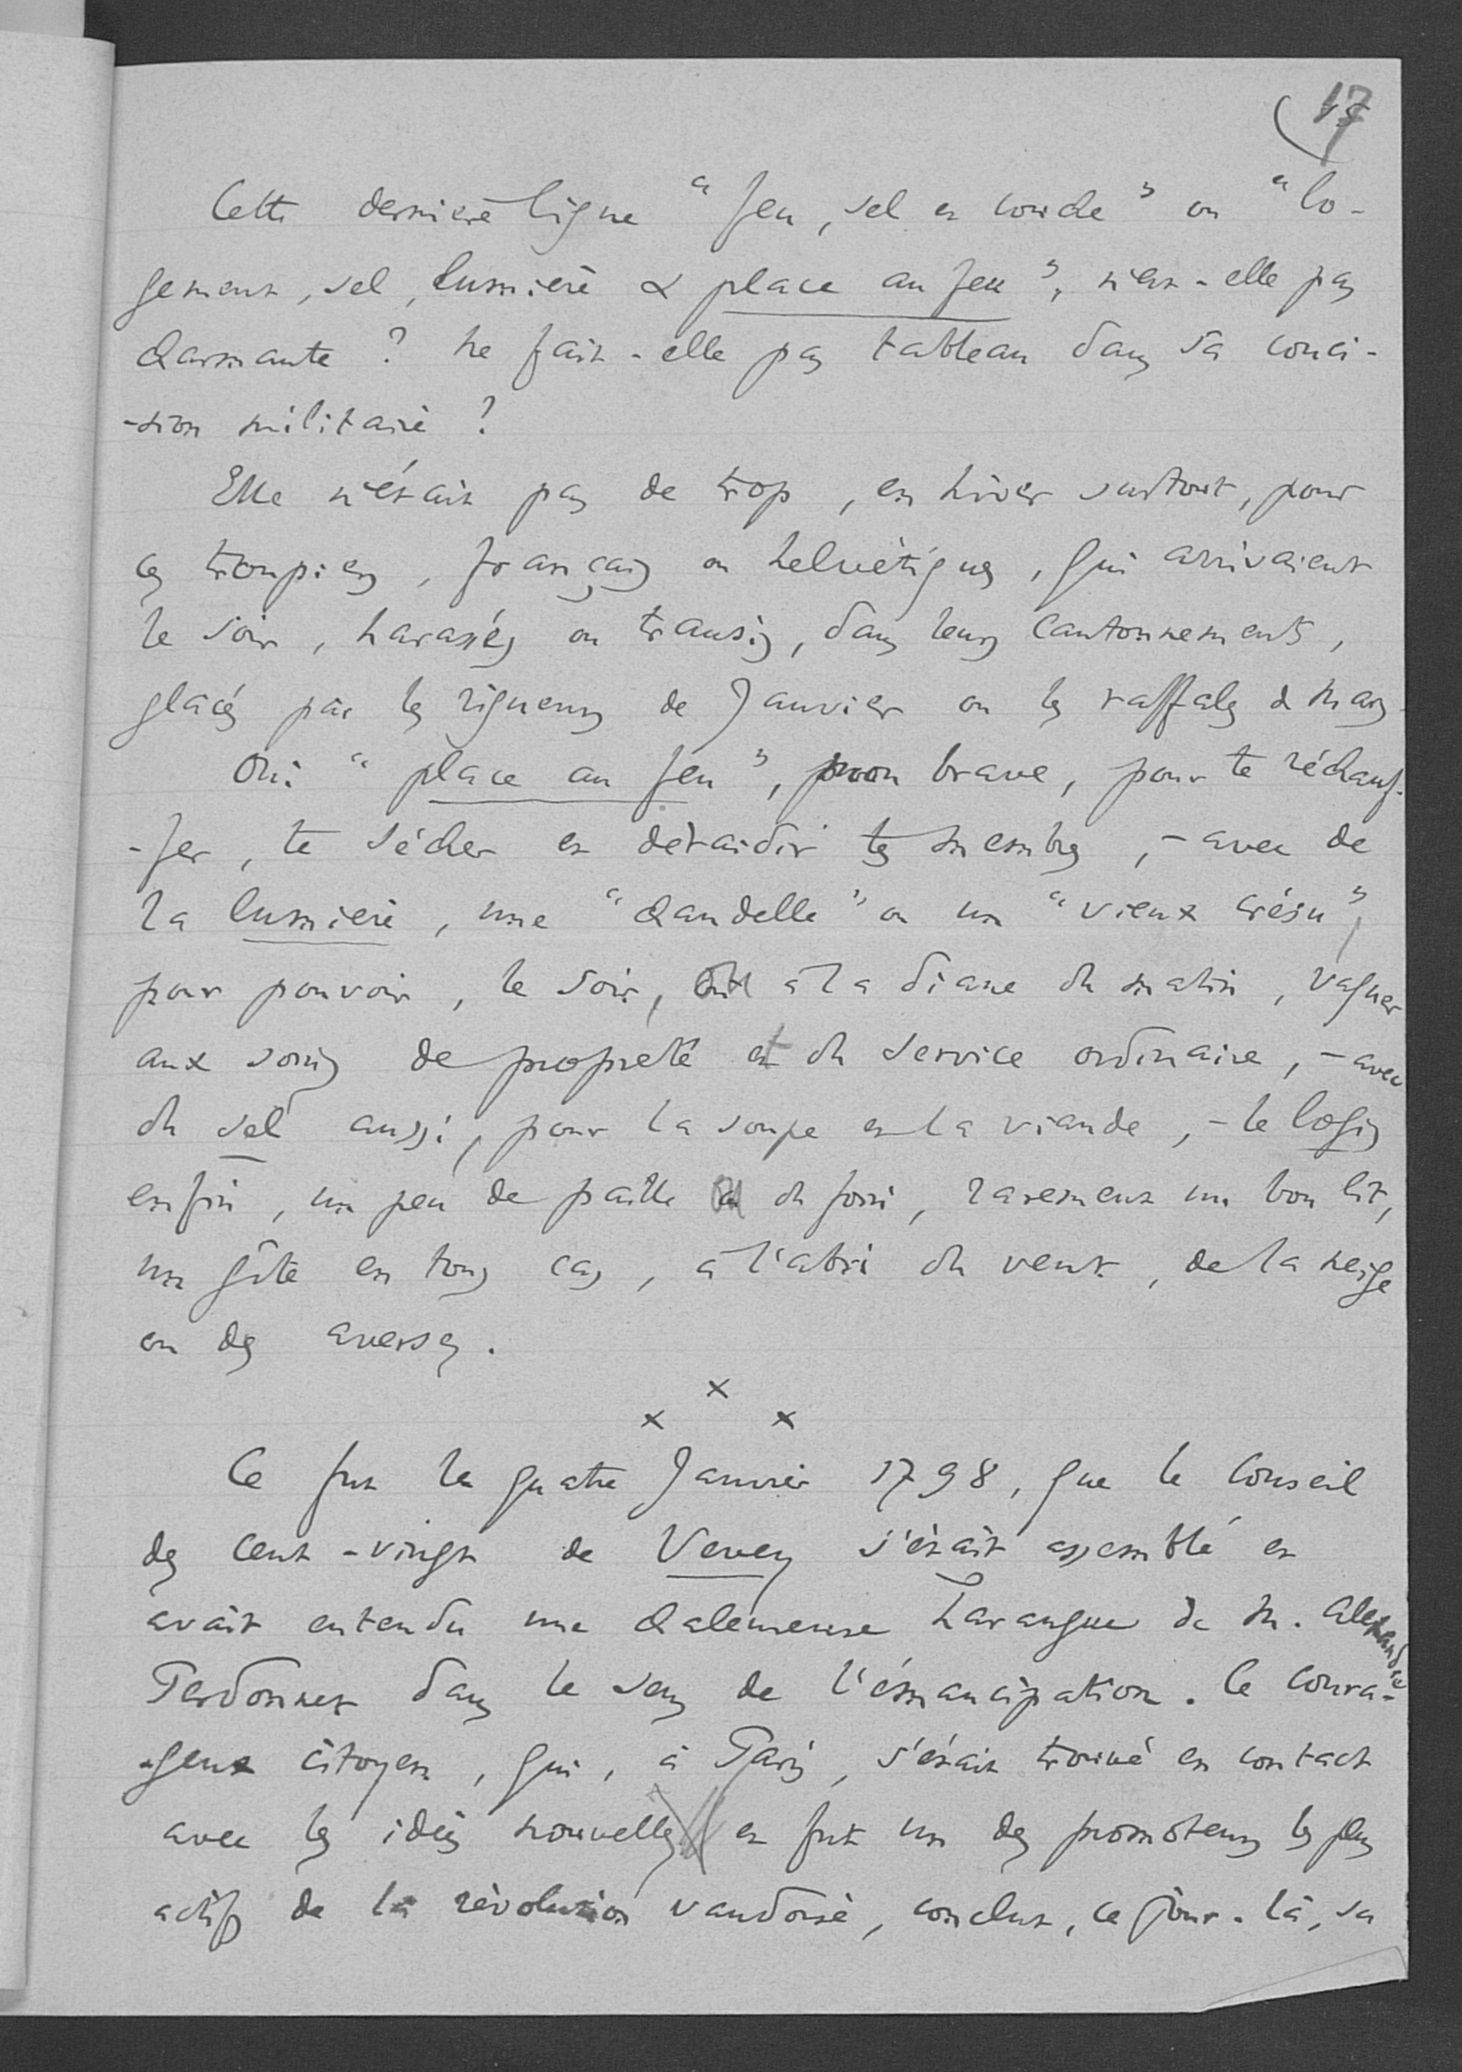 17
Cette dernière ligne "feu, sel et couche" ou "lo-
gement, sel, lumière & place au feu", n'est-elle pas
charmante ? Ne fait-elle pas tableau dans sa conci-
-sion militaire ?
Elle n'était pas de trop, en hiver surtout, pour
ces troupiers, français ou helvétiques, qui arrivaient
le soir, harassés ou transis, dans leurs cantonnements,
glacés par les rigueurs de Janvier ou les raffales de Mars.
Oui "place au feu", mon brave, pour te réchauf-
-fer, te sécher et déraidir tes membres, - avec de
la lumière, une "chandelle" ou un "vieux crésu",
pour pouvoir, le soir, ou à la diane du matin, vaquer
aux soins de propreté et du service ordinaire, - avec
du sel aussi, pour la soupe et la viande, - le logis
enfin, un peu de paille ou du foin, rarement un bon lit,
un gîte en tous cas, à l'abri du vent, de la neige
ou des averses.
x
x x
Ce fut le quatre Janvier 1798, que le Conseil
des Cent-vingt de Vevey s'était assemblé et
avait entendu une chaleureuse harangue de M. Alexandre
Perdonnet dans le sens de l'émancipation. Ce coura-
-geux citoyen, qui, à Paris, s'était trouvé en contact
avec les idées nouvelles et fut un des promoteurs les plus
actifs de la révolution vaudoise, conclut, ce jour-là, sa